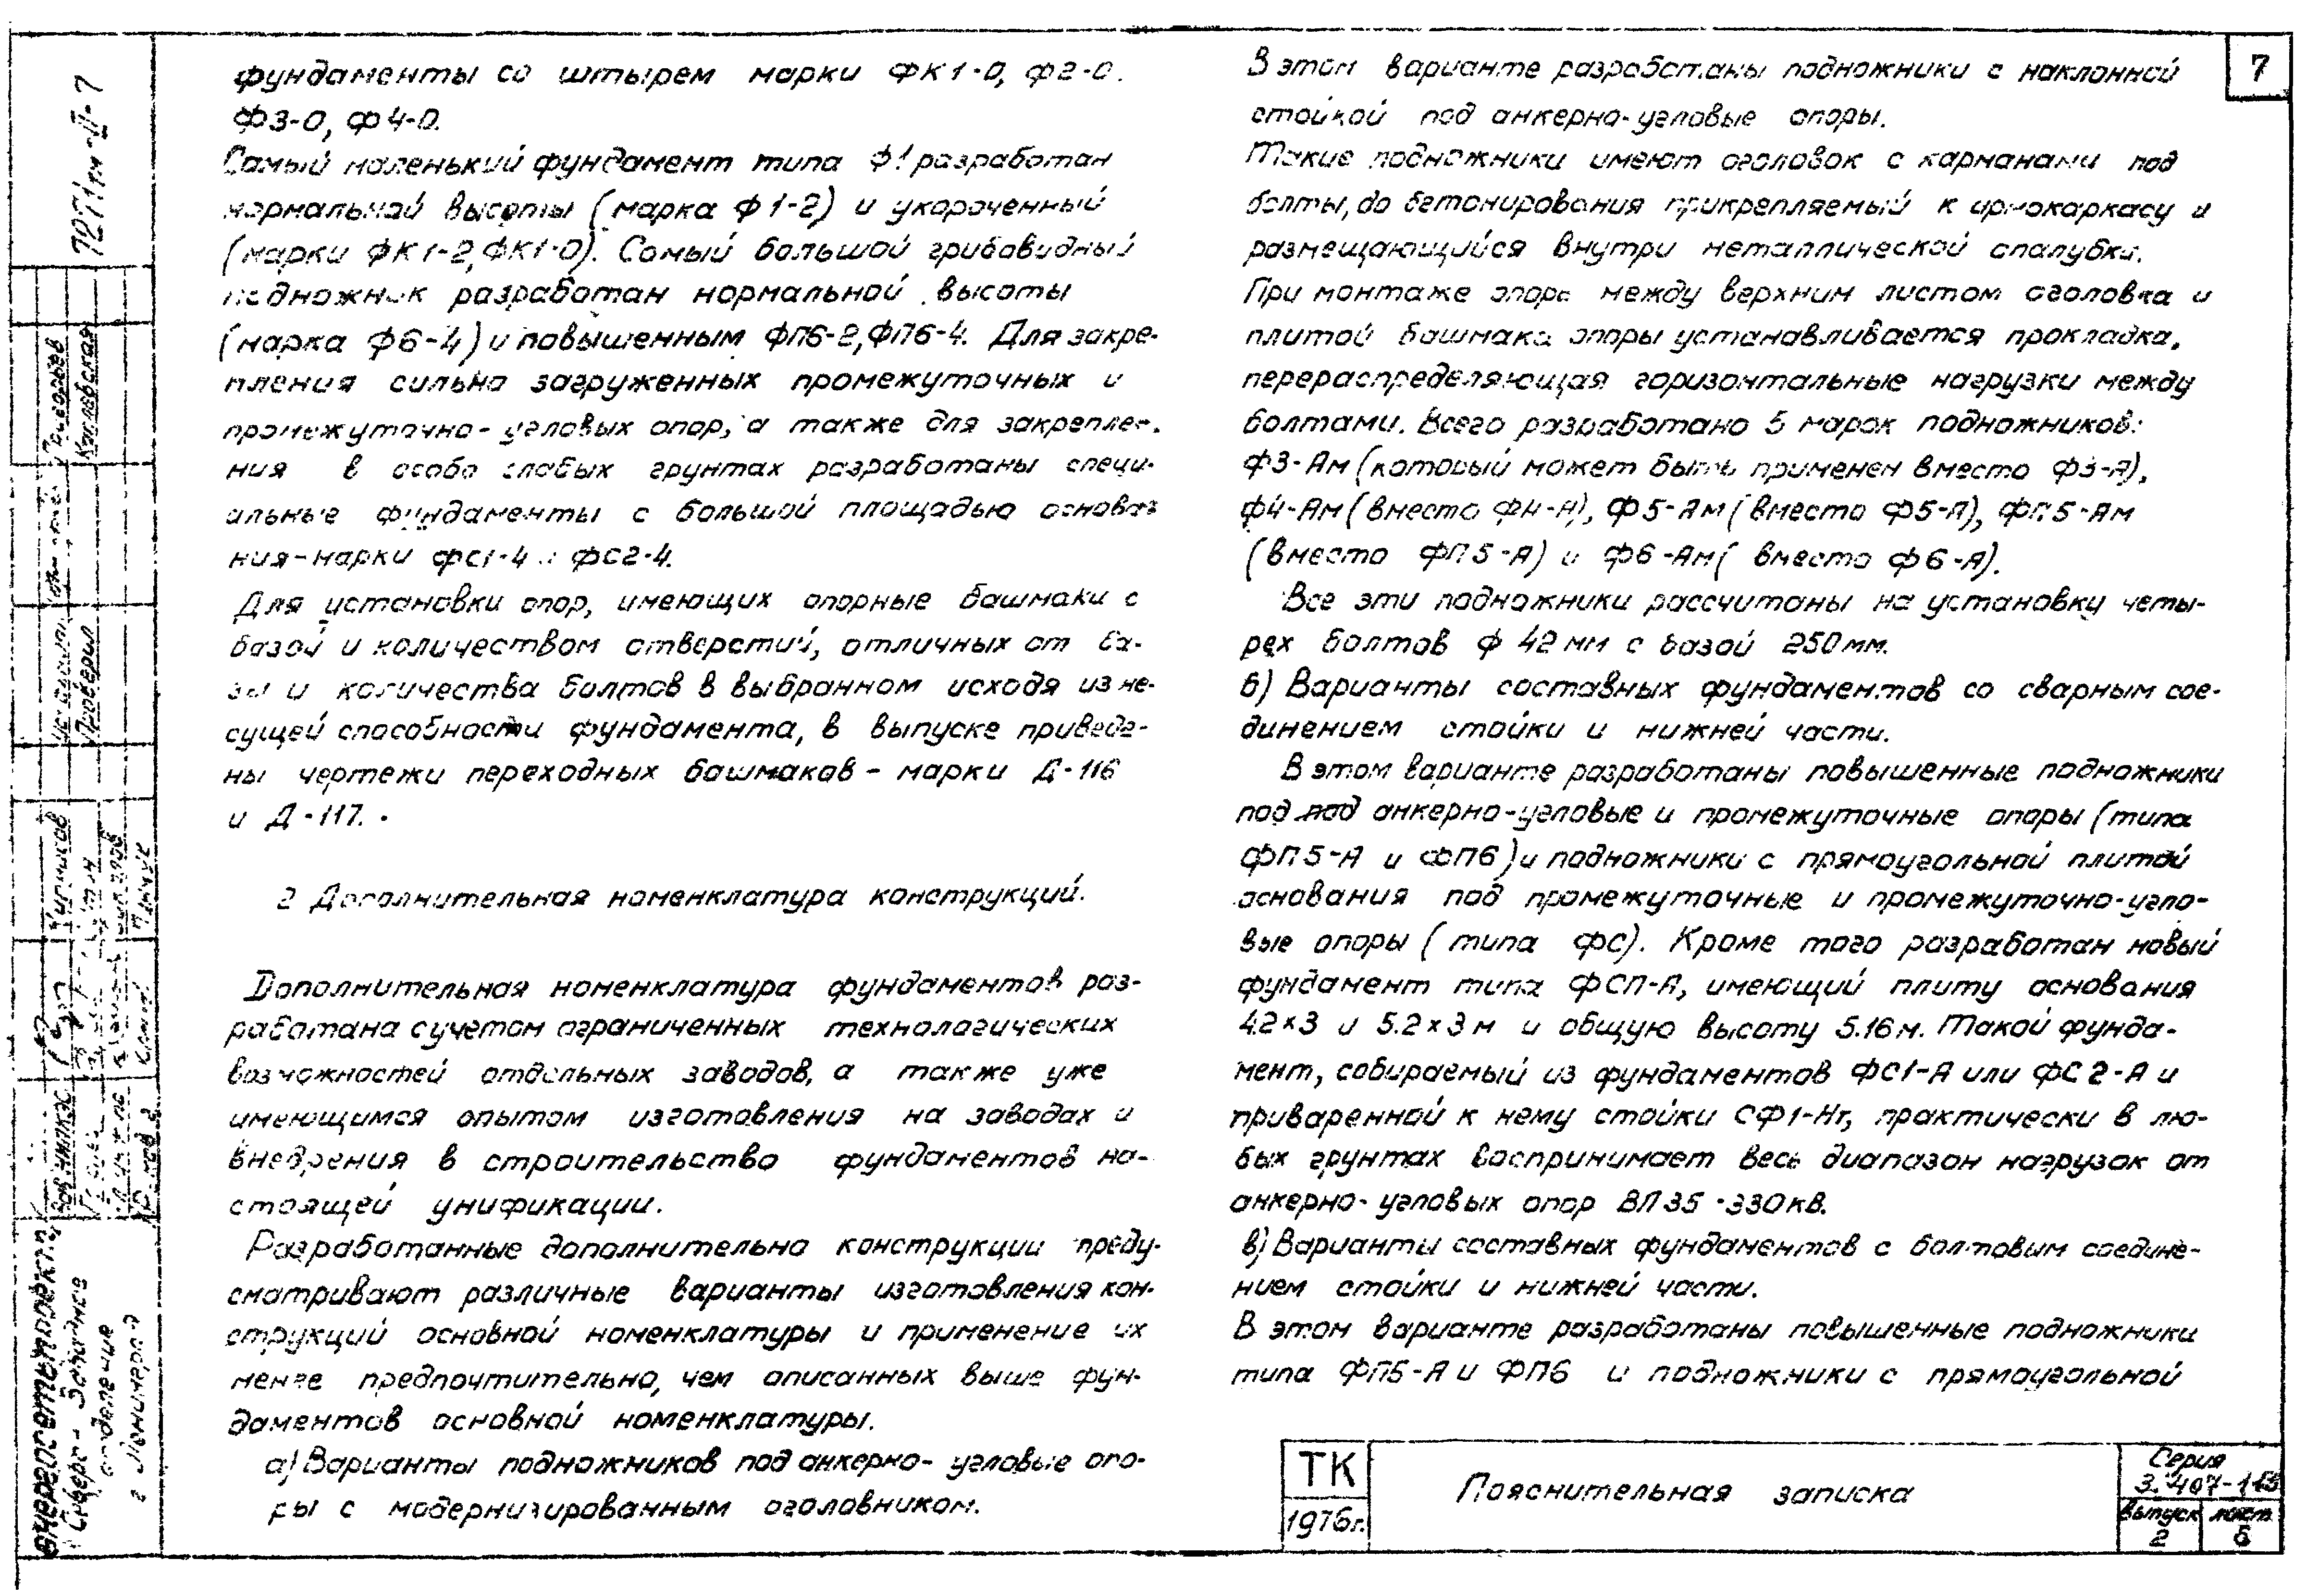 фундаменты со штырем марки ФК1-0, Ф2-0.
Ф3-0, Ф4-0.
Самый маленький фундамент типа Ф1 разработан
нормальной высоты (марка Ф1-2) и укороченный
(марки ФК1-2, ФК1-0). Самый большой грибовидный
подножник разработан нормальной высоты
(марка Ф6-4) и повышенным ФП6-2, ФП6-4. Для закре-
пления сильно загруженных промежуточных и
промежуточно-угловых опор, а также для закрепле-
ния в особо слабых грунтах разработаны специ-
альные фундаменты с большой площадью основа-
ния-марки ФС1-4 и ФС2-4.
Для установки опор, имеющих опорные башмаки с
базой и количеством отверстий, отличных от ба-
зы и количества болтов в выбранном исходя из не-
сущей способности фундамента, в выпуске приведе-
ны чертежи переходных башмаков - марки Д-116
и Д-117.
2 Дополнительная номенклатура конструкций.
Дополнительная номенклатура фундаментов раз-
работана с учетом ограниченных технологических
возможностей отдельных заводов, а также уже
имеющимся опытом изготовления на заводах и
внедрения в строительство фундаментов на-
стоящей унификации.
Разработанные дополнительно конструкции преду-
сматривают различные варианты изготовления кон-
струкций основной номенклатуры и применение их
менее предпочтительно, чем описанных выше фун-
даментов основной номенклатуры.
а) Варианты подножников под анкерно-угловые опо-
ры с модернизированным оголовником.
7
В этом варианте разработаны подножники с наклонной
стойкой под анкерно-угловые опоры.
Такие подножники имеют оголовок с карманами под
болты, до бетонирования прикрепляемый к армокаркасу и
размещающийся внутри металлической опалубки.
При монтаже опоры между верхним листом оголовка и
плитой башмака опоры устанавливается прокладка,
перераспределяющая горизонтальные нагрузки между
болтами. Всего разработано 5 марок подножников:
Ф3-Ам (который может быть применен вместо Ф3-А),
Ф4-Ам (вместо Ф4-А), Ф5-Ам (вместо Ф5-А), ФП5-Ам
(вместо ФП5-А) и Ф6-Ам (вместо Ф6-А).
Все эти подножники рассчитаны на установку четы-
рех болтов ф 42 мм с базой 250 мм.
б) Варианты составных фундаментов со сварным сое-
динением стойки и нижней части.
В этом варианте разработаны повышенные подножники
под под анкерно-угловые и промежуточные опоры (типа
ФП5-А и ФП6) и подножники с прямоугольной плитой
основания под промежуточные и промежуточно-угло-
вые опоры (типа ФС). Кроме того разработан новый
фундамент типа ФСП-А, имеющий плиту основания
4.2×3 и 5.2×3 м и общую высоту 5.16 м. Такой фунда-
мент, собираемый из фундаментов ФС1-А или ФС2-А и
приваренной к нему стойки СФ1-Нг, практически в лю-
бых грунтах воспринимает весь диапазон нагрузок от
анкерно-угловых опор ВЛ 35-330 кВ.
в) Варианты составных фундаментов с болтовым соедине-
нием стойки и нижней части.
В этом варианте разработаны повышенные подножники
типа ФП5-А и ФП6 и подножники с прямоугольной
ТК
1976г.
Пояснительная записка
Серия
3.407-115
выпуск
2
лист
5
7271тм-II-7
Григорьев
Каплевская
Проверил
Энергосетьпроект
Северо-Западное
отделение
г Ленинград